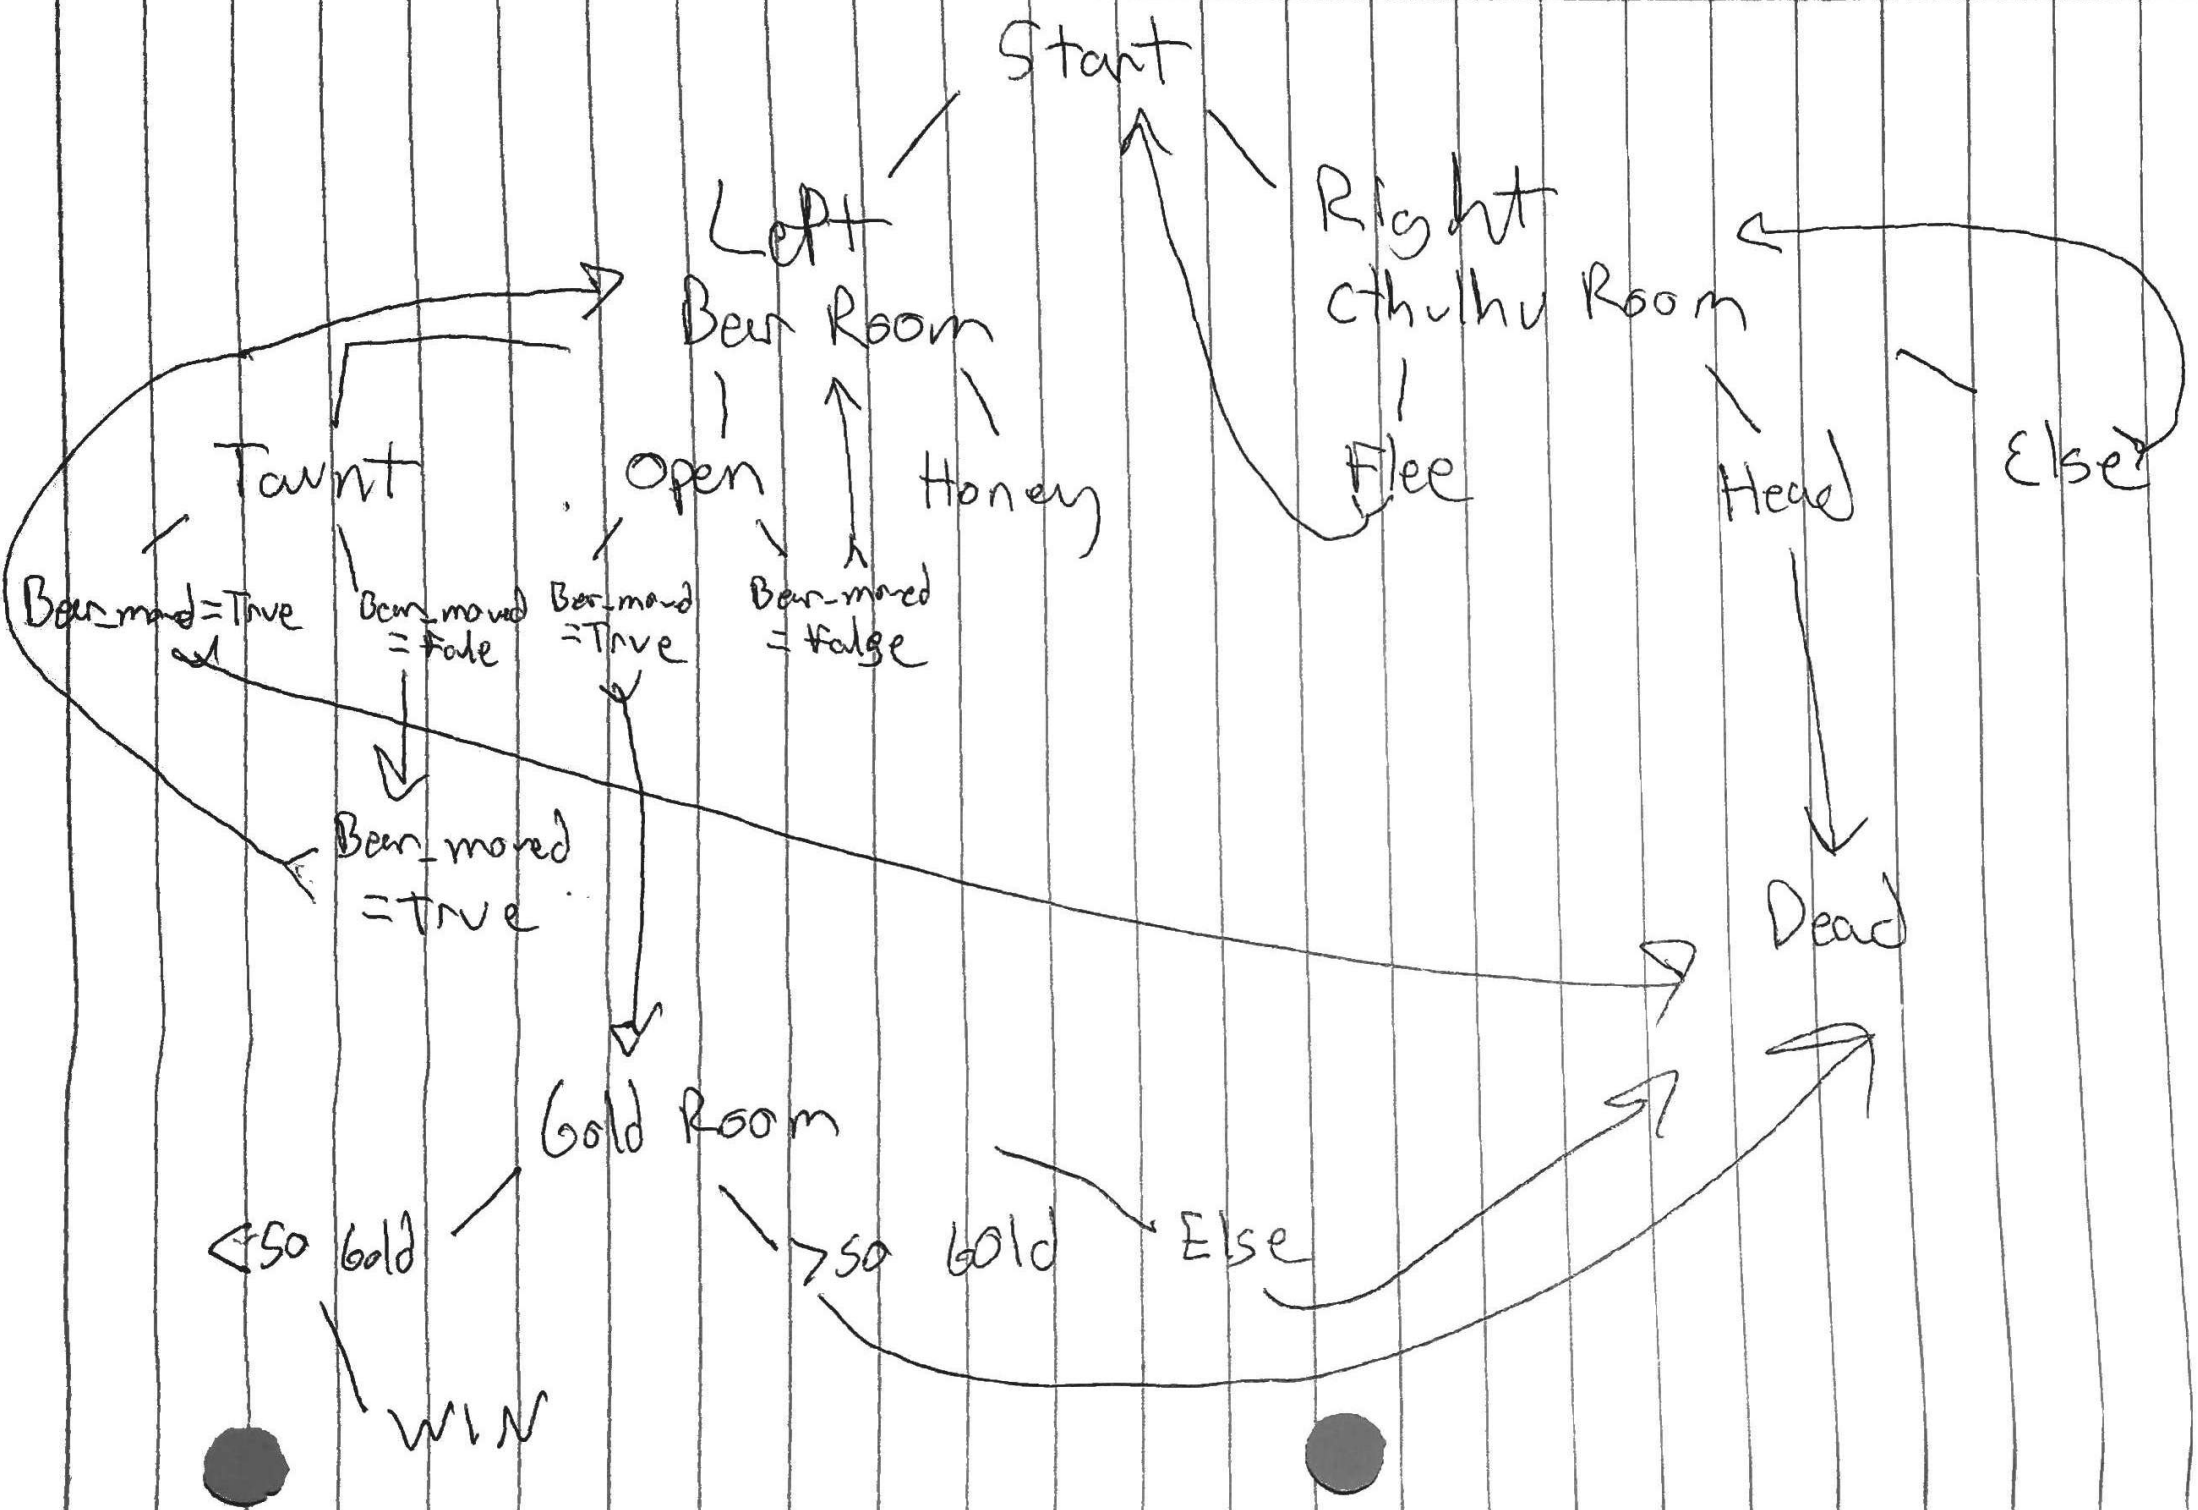 Start
Left
Right
Bear Room
Cthulhu Room
Taunt
Open
Honey
Flee
Head
Else
Bear_moved=True
Bear_moved
=Fale
Bear_moved
=True
Bear_moved
=False
Bear_moved
=True
Dead
Gold Room
<50 Gold
>50 Gold
Else
WIN